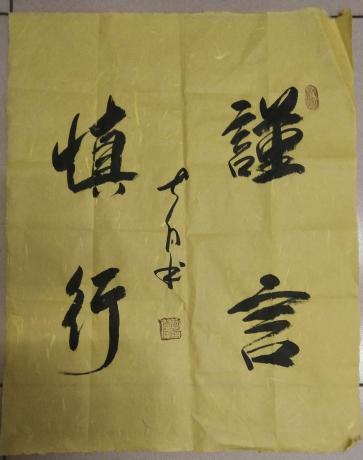 謹言
慎行